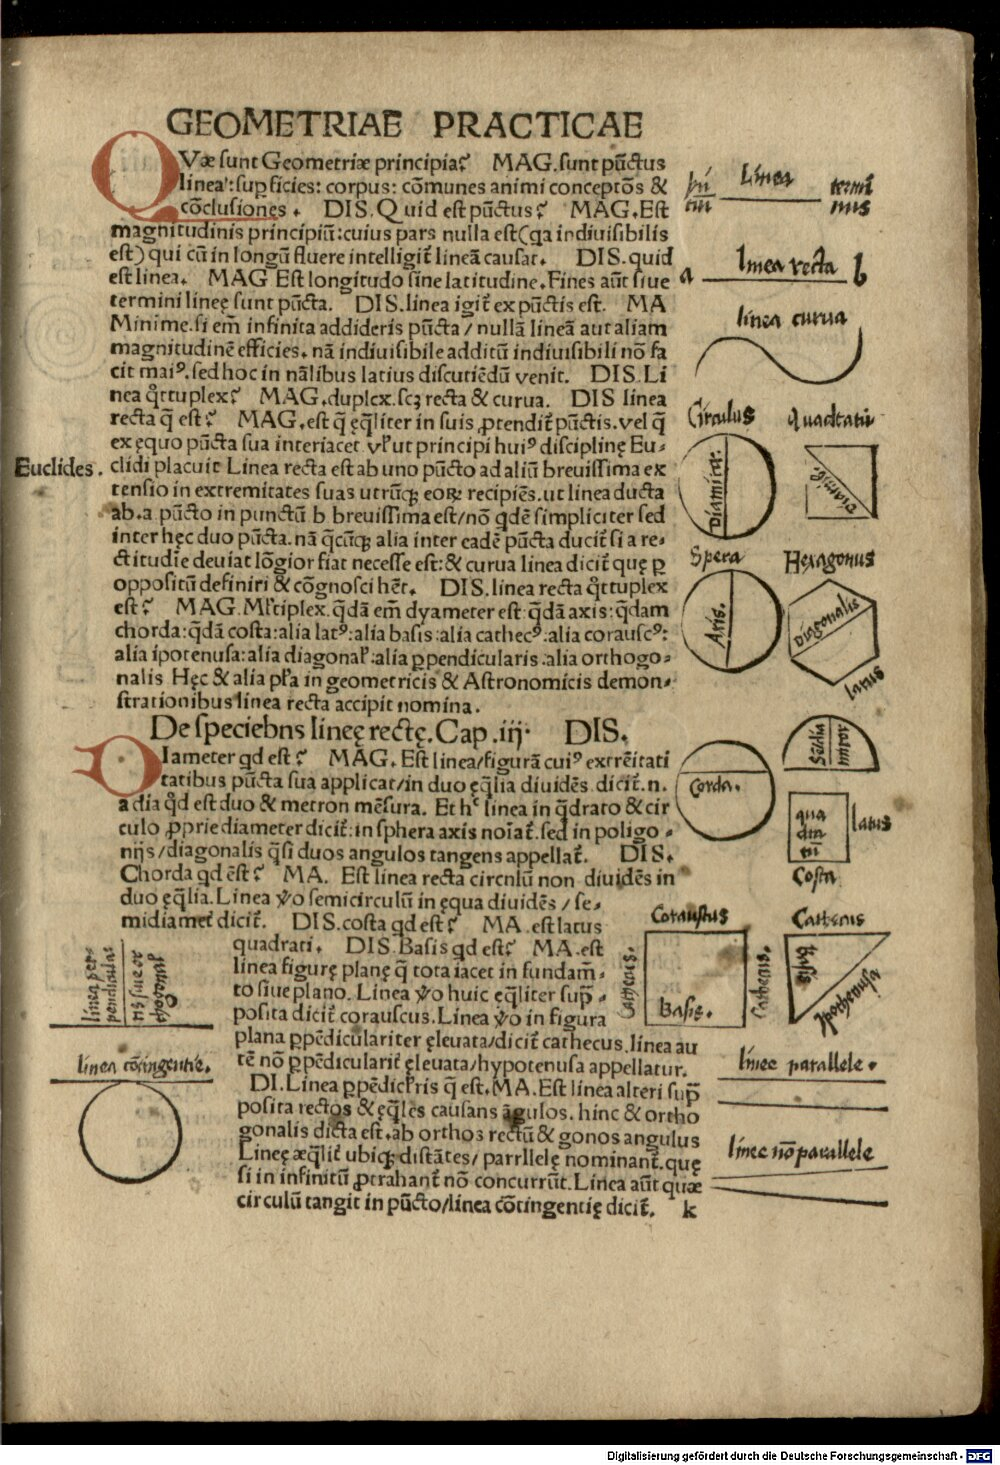 GEOMETRIAE PRACTICAE
QVæ sunt Geometriæ principia? MAG. sunt pūctus
linea: sup̄ficies: corpus: cōmunes animi conceptōs &
cōclusiones. DIS. Quid est pūctus? MAG. Est
magnitudinis principiū: cuius pars nulla est (qa indiuisibilis
est) qui cū in longū fluere intelligit̄ lineā causat. DIS. quid
est linea. MAG Est longitudo sine latitudine. Fines aūt siue
termini lineę sunt pūcta. DIS. linea igit̄ ex pūctis est. MA
Minime. si em̄ infinita addideris pūcta / nullā lineā aut aliam
magnitudinē efficies. nā indiuisibile additū indiuisibili nō fa
cit maiꝰ. sed hoc in nālibus latius discutiēdū venit. DIS. Li
nea q̄ttuplex? MAG. duplex. scꝫ recta & curua. DIS linea
recta q̄ est? MAG. est q̄ ęq̄liter in suis ꝓtendit̄ pūctis. vel q̄
ex ęquo pūcta sua interiacet vl̄ ut principi huiꝰ disciplinę Eu-
Euclides.
clidi placuit Linea recta est ab uno pūcto ad aliū breuissima ex
tensio in extremitates suas utrūqꝫ eoꝝ recipiēs. ut linea ducta
ab. a pūcto in punctū b breuissima est / nō qdē simpliciter sed
inter hęc duo pūcta. nā q̄cūqꝫ alia inter eadē pūcta ducit̄ si a re-
ctitudīe deuiat lōgior fiat necesse est: & curua linea dicit̄ quę ꝑ
oppositū definiri & cōgnosci hēt. DIS. linea recta q̄ttuplex
est? MAG. Ml̄tiplex. q̄dā em̄ dyameter est q̄dā axis: q̄dam
chorda: q̄dā costa: alia latꝰ: alia basis: alia cathecꝰ: alia corauscꝰ:
alia ipotenusa: alia diagonal̄: alia ꝑpendicularis: alia orthogo-
nalis Hęc & alia pl̄a in geometricis & Astronomicis demon-
strationibus linea recta accipit nomina.
De speciebns lineę rectę. Cap. iij. DIS.
DIameter qd est? MAG. Est linea / figurā cuiꝰ extrēitati
tatibus pūcta sua applicat / in duo ęq̄lia diuidēs dicit̄. n.
a dia q̄d est duo & metron mēsura. Et hᶜ linea in q̄drato & cir
culo ꝓprie diameter dicit̄: in sphera axis noīat̄. sed in poligo-
nijs / diagonalis q̄si duos angulos tangens appellat̄. DIS.
Chorda qd ēst? MA. Est linea recta circnlū non diuidēs in
duo ęq̄lia. Linea v̊o semicirculū in ęqua diuidēs / se-
midiamet̄ dicit̄. DIS. costa qd est? MA. est latus
quadrati. DIS. Basis qd est? MA. est
linea figurę planę q̄ tota iacet in fundam̄-
to siue plano. Linea v̊o huic ęq̄liter sup̄-
posita dicit̄ corauscus. Linea v̊o in figura
plana ꝑpēdiculariter ęleuata / dicit̄ cathecus. linea au
tē nō ꝑpēdicularit̄ ęleuata / hypotenusa appellatur.
DI. Linea ꝑpēdicl̄ris q̄ est. MA. Est linea alteri sup̄
posita rectos & ęq̄les causans āgulos. hinc & ortho
gonalis dicta est. ab orthoꝫ rectū & gonos angulus
Lineę æq̄lit̄ ubiqꝫ distātes / parrllelę nominant̄. quę
si in infinitū ꝓtrahant̄ nō concurrūt. Linea aūt quæ
circulū tangit in pūcto / linea cōtingentię dicit̄. k
Linea
termi
nus
a linea recta b
linea curua
Circulus
Diamiter.
Spera
Axis.
Hexagonus
Diagonalis
latus
Corda.
qua
dra
ti
latus
Costa
Coraustus
Cathecus.
Basis.
Cathecus.
basis
hypothenusa
linee parallele.
linee nō parallele
linea per-
pendicularis
linea cōtingentie.
Digitalisierung gefördert durch die Deutsche Forschungsgemeinschaft - DFG